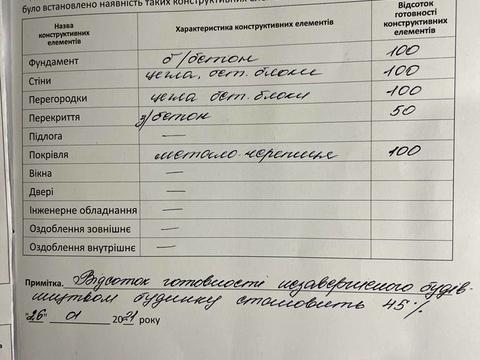 було встановлено наявність таких конструктивних
Назва конструктивних елементів
Характеристика конструктивних елементів
Відсоток готовності конструктивних елементів
Фундамент б/бетон 100
Стіни цегла, бет. блоки 100
Перегородки цегла бет. блоки 100
Перекриття з/бетон 50
Підлога —
Покрівля метало-черепиця 100
Вікна —
Двері —
Інженерне обладнання —
Оздоблення зовнішнє —
Оздоблення внутрішнє —
Примітка. Відсоток готовності незавершеного будів-
ництвом будинку становить 45%
"26" 01 2021 року